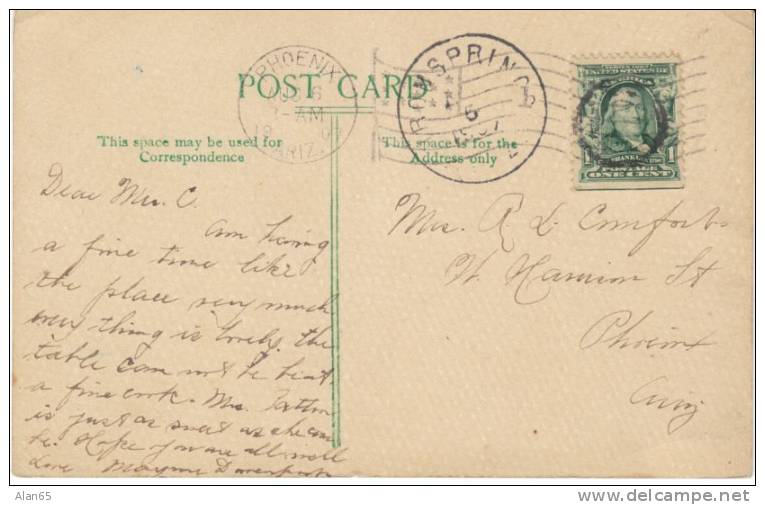 PHOENIX
AUG 6
-AM
ARIZ.
IRON SPRINGS
6
POST CARD
This space may be used for
Correspondence
This space is for the
Address only
UNITED STATES
FRANKLIN
1 1
POSTAGE
ONE CENT
Dear Mrs. C.
Am having
a fine time like
the place very much
every thing is lovely, the
table can not be beat.
a fine cook. Mrs.
is just as sweet as she can
be. Hope you are all well
Love Mayme Davenport
Mrs. R L Comfort
W. Harrison St
Phoenix
Ariz
Alan65
http://www.delcampe.net